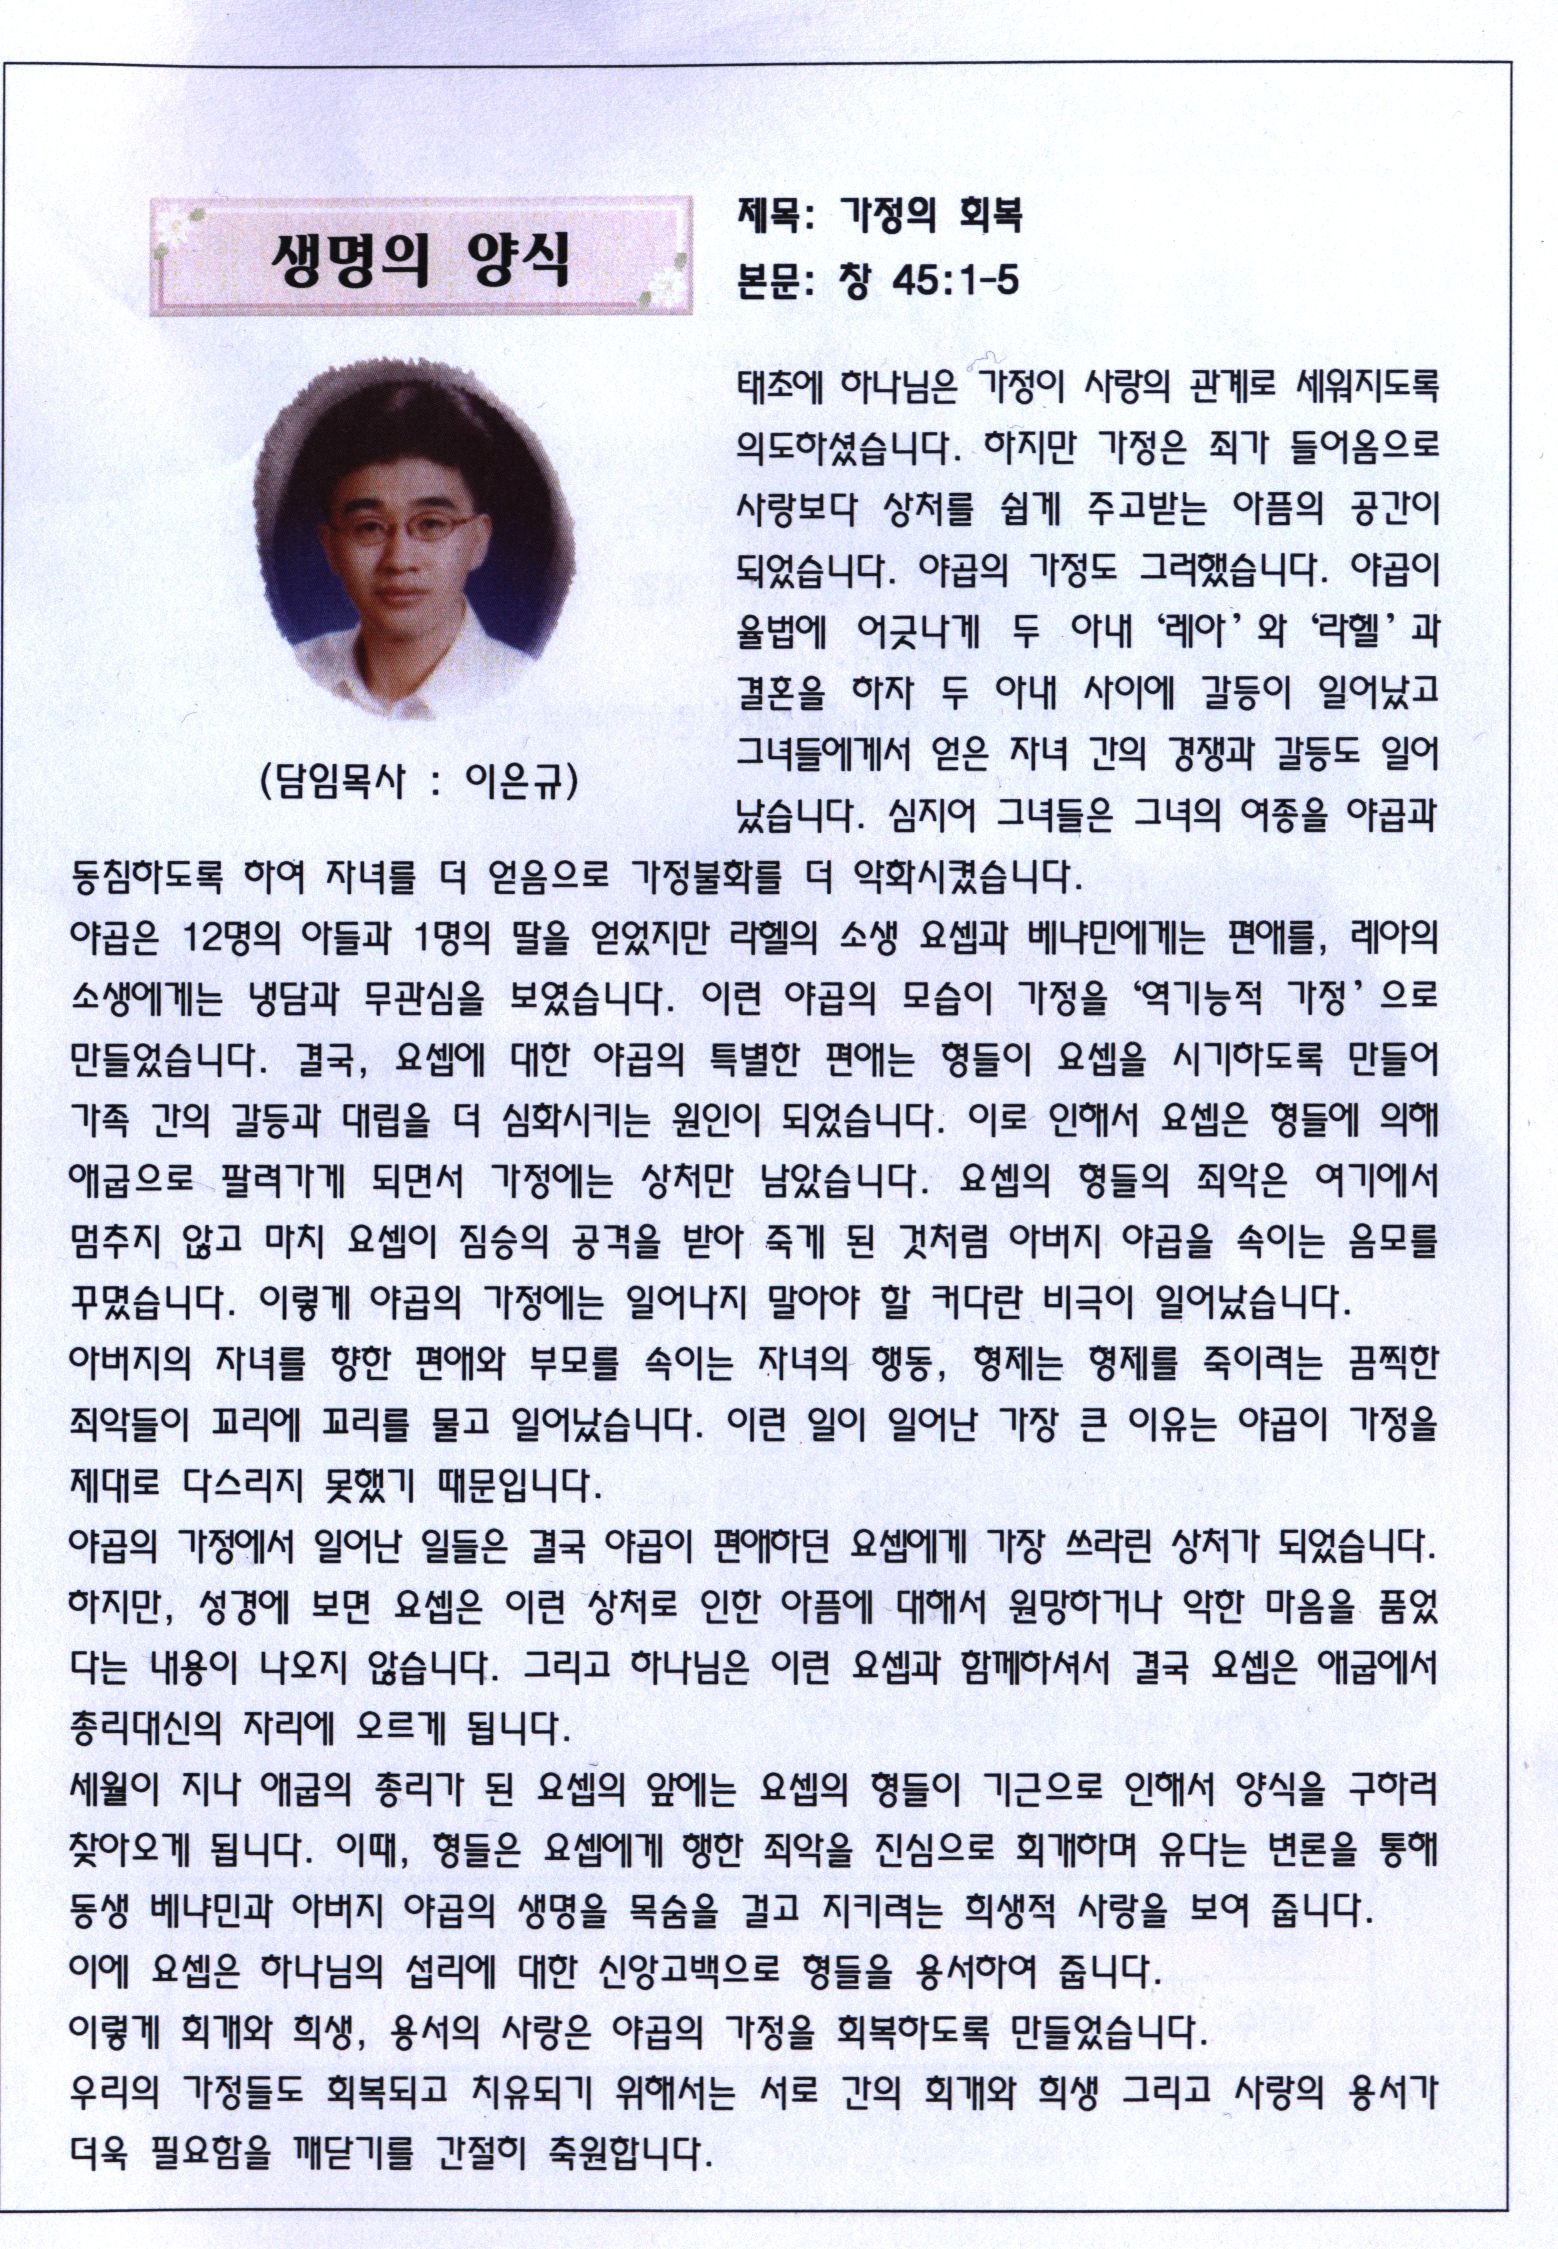 생명의 양식
제목: 가정의 회복
본문: 창 45:1-5
(담임목사 : 이은규)
태초에 하나님은 가정이 사랑의 관계로 세워지도록
의도하셨습니다. 하지만 가정은 죄가 들어옴으로
사랑보다 상처를 쉽게 주고받는 아픔의 공간이
되었습니다. 야곱의 가정도 그러했습니다. 야곱이
율법에 어긋나게 두 아내 ‘레아’와 ‘라헬’과
결혼을 하자 두 아내 사이에 갈등이 일어났고
그녀들에게서 얻은 자녀 간의 경쟁과 갈등도 일어
났습니다. 심지어 그녀들은 그녀의 여종을 야곱과
동침하도록 하여 자녀를 더 얻음으로 가정불화를 더 악화시켰습니다.
야곱은 12명의 아들과 1명의 딸을 얻었지만 라헬의 소생 요셉과 베냐민에게는 편애를, 레아의
소생에게는 냉담과 무관심을 보였습니다. 이런 야곱의 모습이 가정을 ‘역기능적 가정’으로
만들었습니다. 결국, 요셉에 대한 야곱의 특별한 편애는 형들이 요셉을 시기하도록 만들어
가족 간의 갈등과 대립을 더 심화시키는 원인이 되었습니다. 이로 인해서 요셉은 형들에 의해
애굽으로 팔려가게 되면서 가정에는 상처만 남았습니다. 요셉의 형들의 죄악은 여기에서
멈추지 않고 마치 요셉이 짐승의 공격을 받아 죽게 된 것처럼 아버지 야곱을 속이는 음모를
꾸몄습니다. 이렇게 야곱의 가정에는 일어나지 말아야 할 커다란 비극이 일어났습니다.
아버지의 자녀를 향한 편애와 부모를 속이는 자녀의 행동, 형제는 형제를 죽이려는 끔찍한
죄악들이 꼬리에 꼬리를 물고 일어났습니다. 이런 일이 일어난 가장 큰 이유는 야곱이 가정을
제대로 다스리지 못했기 때문입니다.
야곱의 가정에서 일어난 일들은 결국 야곱이 편애하던 요셉에게 가장 쓰라린 상처가 되었습니다.
하지만, 성경에 보면 요셉은 이런 상처로 인한 아픔에 대해서 원망하거나 악한 마음을 품었
다는 내용이 나오지 않습니다. 그리고 하나님은 이런 요셉과 함께하셔서 결국 요셉은 애굽에서
총리대신의 자리에 오르게 됩니다.
세월이 지나 애굽의 총리가 된 요셉의 앞에는 요셉의 형들이 기근으로 인해서 양식을 구하려
찾아오게 됩니다. 이때, 형들은 요셉에게 행한 죄악을 진심으로 회개하며 유다는 변론을 통해
동생 베냐민과 아버지 야곱의 생명을 목숨을 걸고 지키려는 희생적 사랑을 보여 줍니다.
이에 요셉은 하나님의 섭리에 대한 신앙고백으로 형들을 용서하여 줍니다.
이렇게 회개와 희생, 용서의 사랑은 야곱의 가정을 회복하도록 만들었습니다.
우리의 가정들도 회복되고 치유되기 위해서는 서로 간의 회개와 희생 그리고 사랑의 용서가
더욱 필요함을 깨닫기를 간절히 축원합니다.